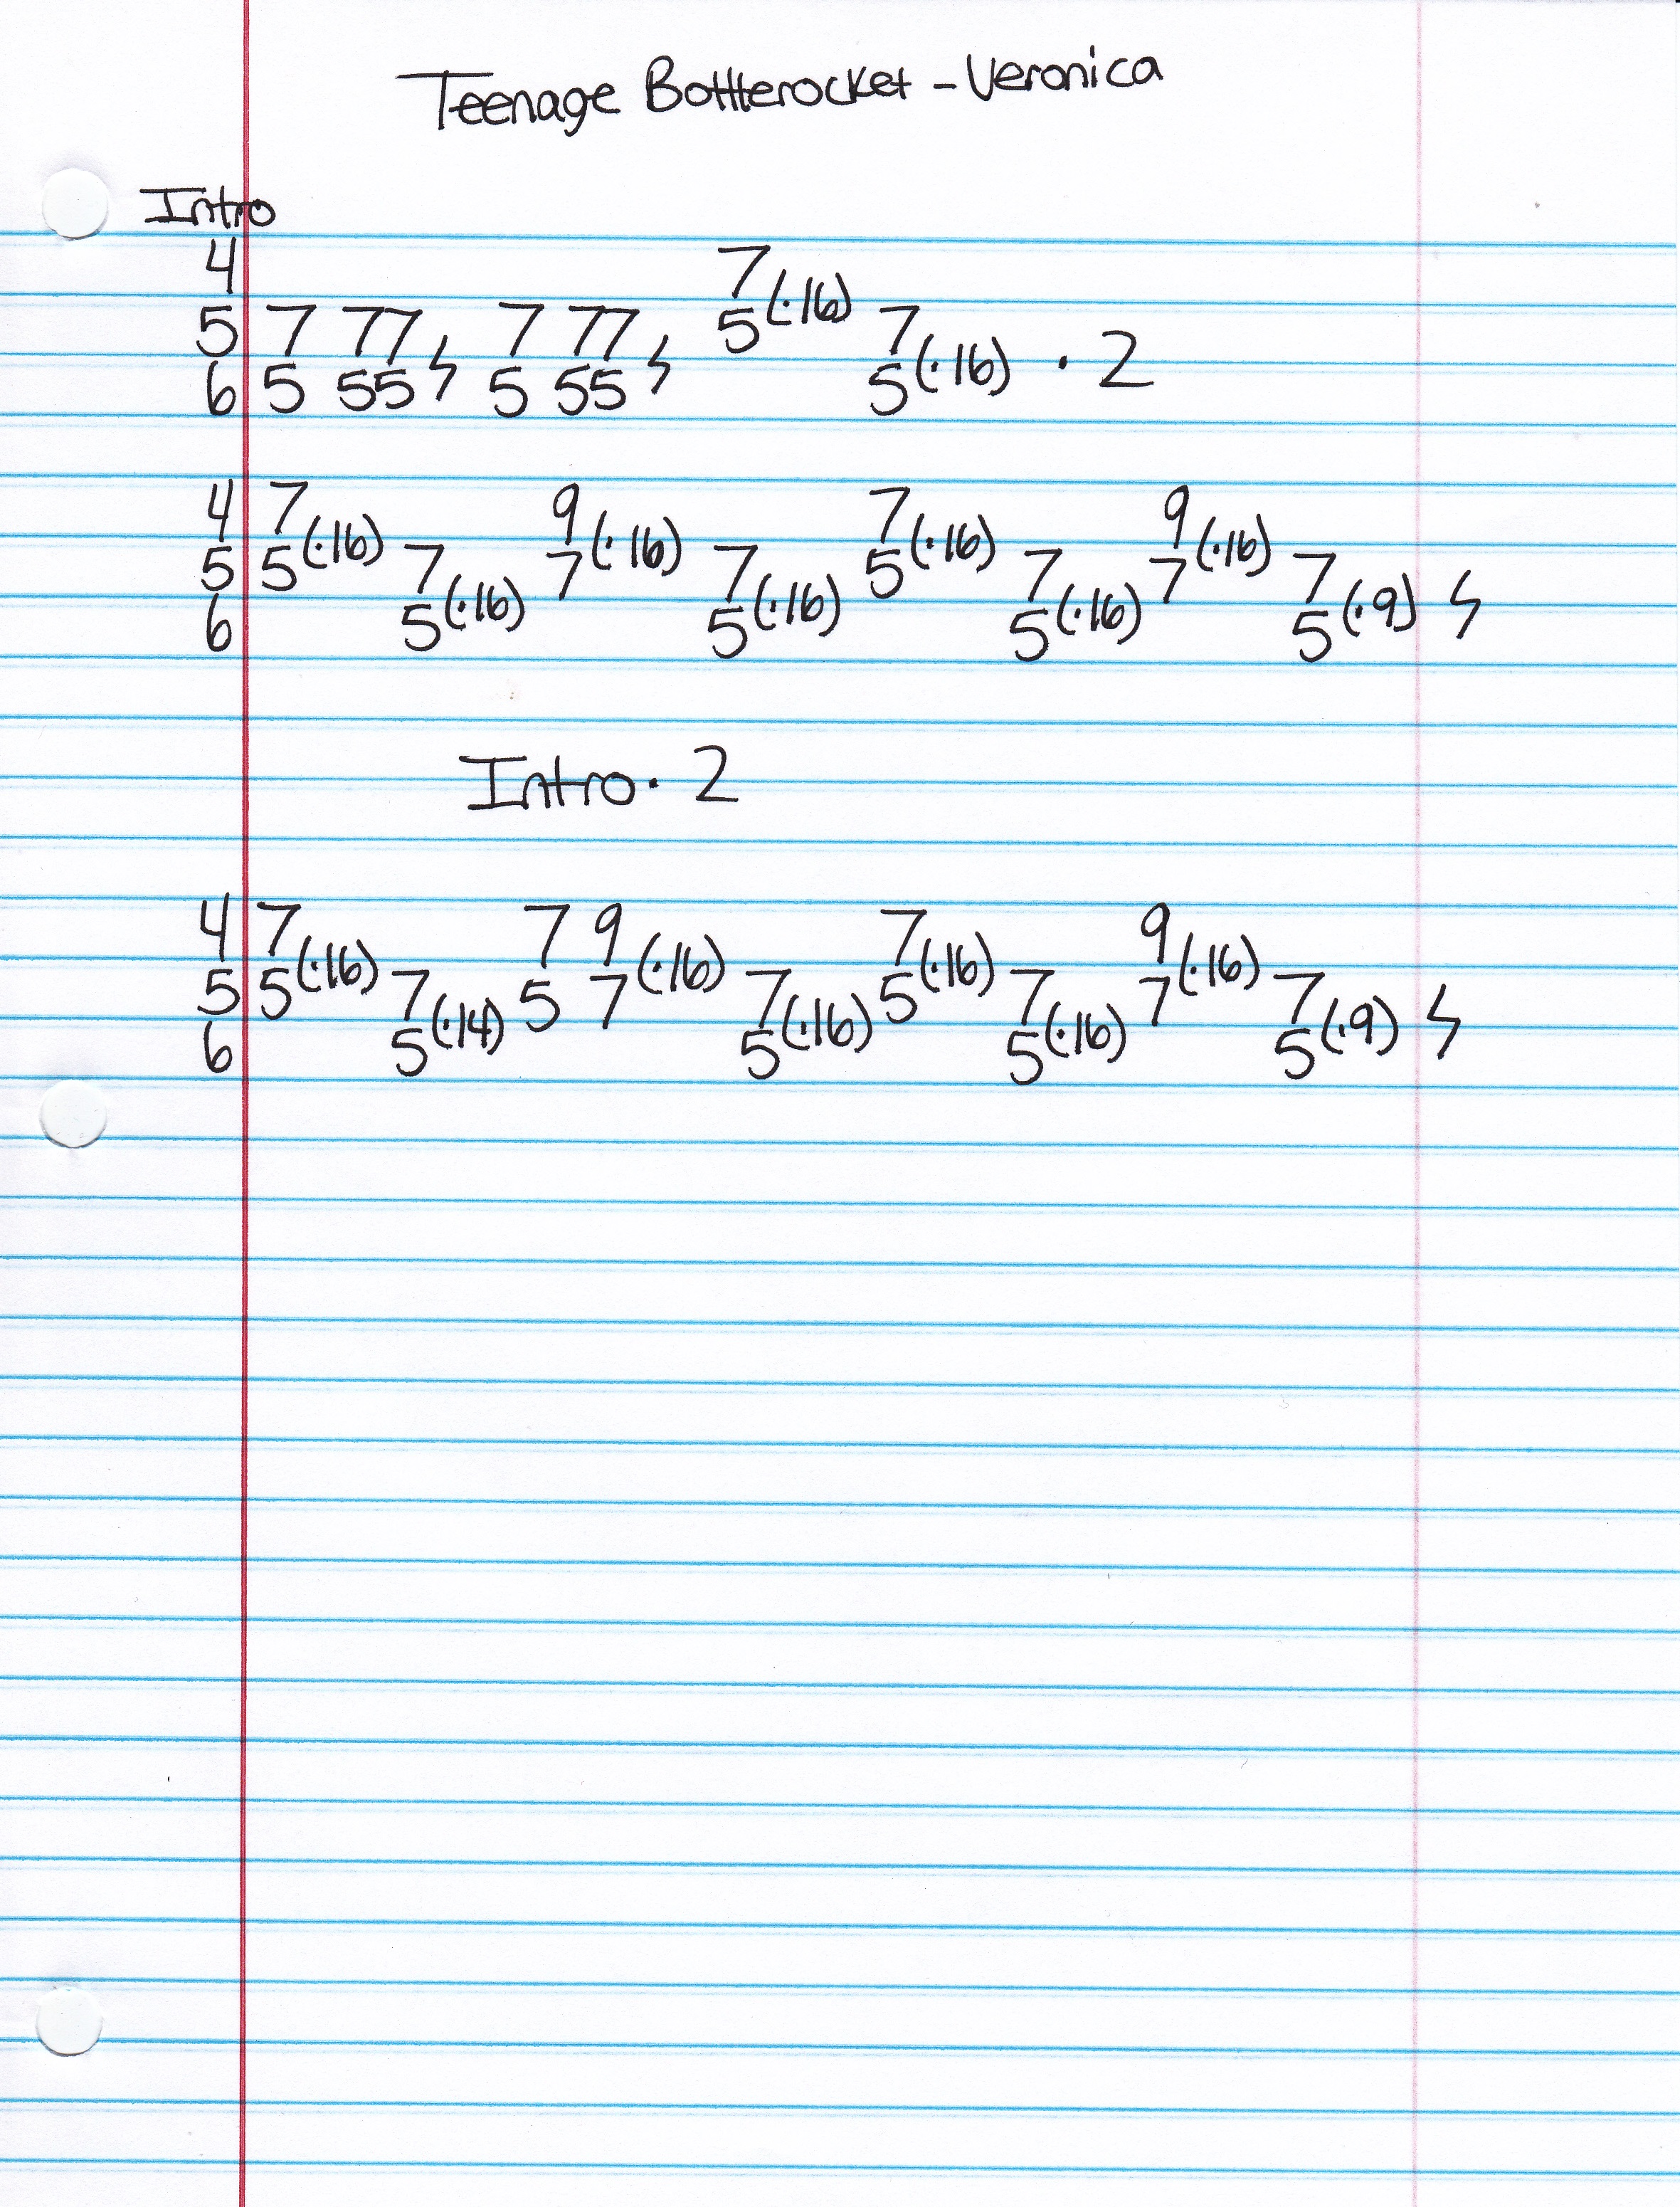 Teenage Bottlerocket - Veronica
Intro
4 7 7
5 7 77 7 77 5(·16) 7
6 5 55 ϟ 5 55 ϟ 5(·16) · 2
4 7 9 7 9
5 5(·16) 7 7(·16) 7 5(·16) 7 7(·16) 7
6 5(·16) 5(·16) 5(·16) 5(·9) ϟ
Intro · 2
4 7 7 9 7 9
5 5(·16) 7 5 7(·16) 7 5(·16) 7 7(·16) 7
6 5(·14) 5(·16) 5(·16) 5(·9) ϟ